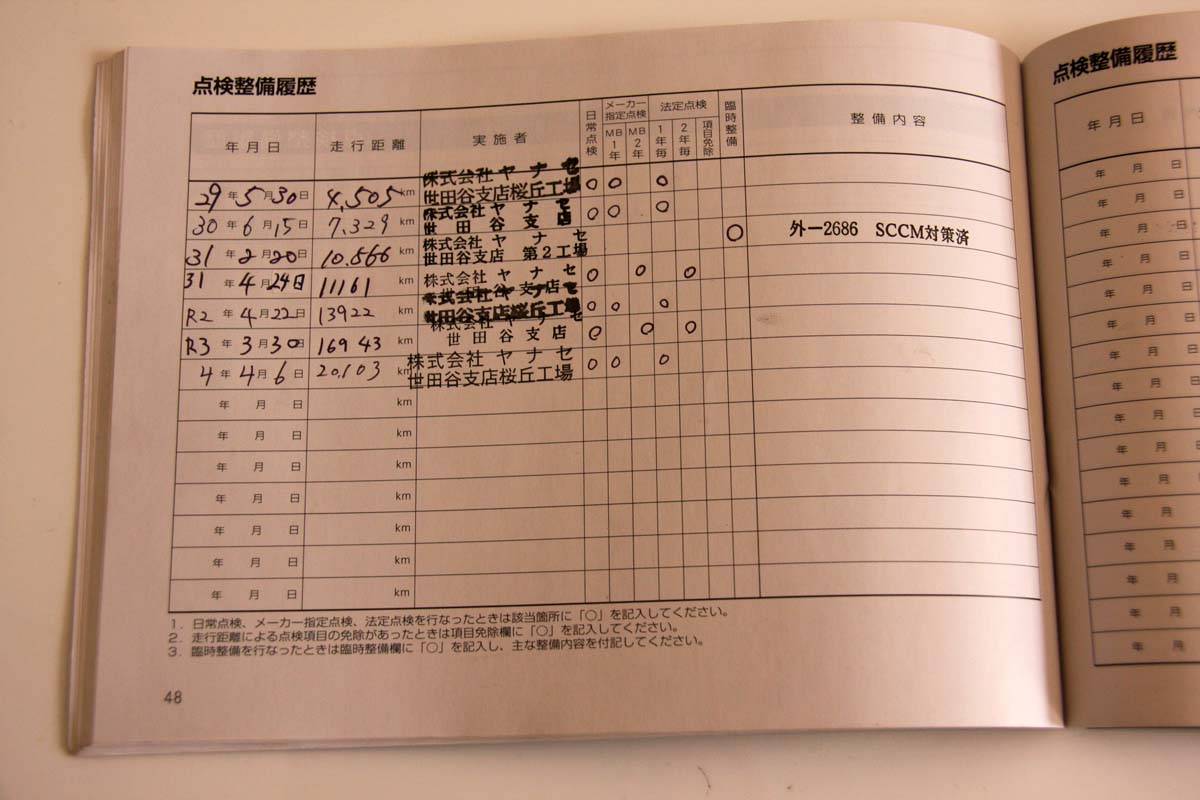 点検整備履歴
年月日 走行距離 実施者 日常点検 メーカー指定点検 MB1年 MB2年 法定点検 1年毎 2年毎 項目免除 臨時整備 整備内容
株式会社ヤナセ
29年5月30日 4,505km 世田谷支店桜丘工場 ○ ○ ○
株式会社ヤナセ
30年6月15日 7,329km 世田谷支店 ○ ○ ○
株式会社ヤナセ
31年2月20日 10.566km 世田谷支店 第2工場 ○ 外ー2686 SCCM対策済
株式会社ヤナセ
31年4月24日 11161km 世田谷支店 ○ ○ ○
株式会社ヤナセ
R2年4月22日 13922km 世田谷支店桜丘工場 ○ ○ ○
株式会社ヤナセ
R3年3月30日 16943km 世田谷支店 ○ ○ ○
株式会社ヤナセ
4年4月6日 20,103km 世田谷支店桜丘工場 ○ ○ ○
年月日 km
年月日 km
年月日 km
年月日 km
年月日 km
年月日 km
年月日 km
1. 日常点検、メーカー指定点検、法定点検を行なったときは該当箇所に「○」を記入してください。
2. 走行距離による点検項目の免除があったときは項目免除欄に「○」を記入してください。
3. 臨時整備を行なったときは臨時整備欄に「○」を記入し、主な整備内容を付記してください。
48
点検整備履歴
年月日
年月
年月
年月
年月
年月
年月
年月
年月
年月
年月
年月
年月
年月
年月
年月